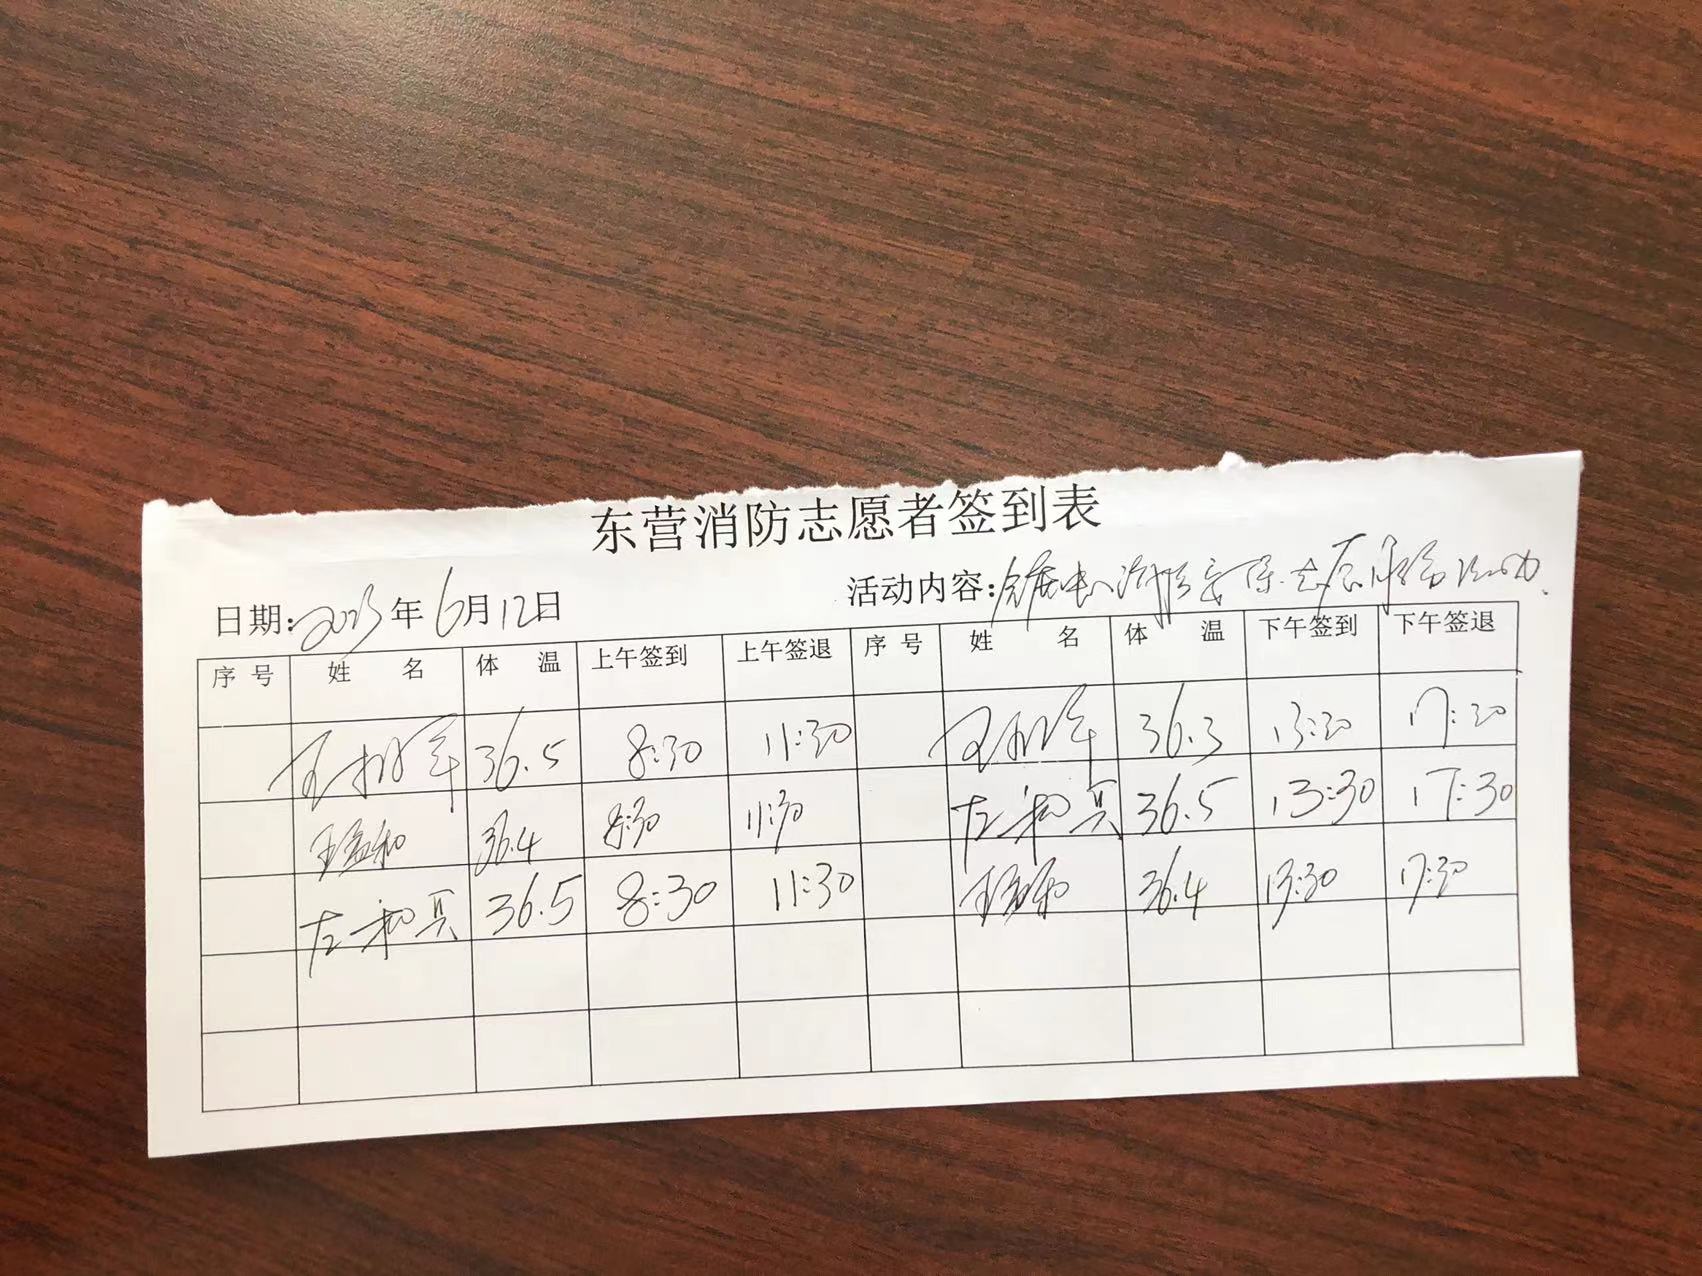 东营消防志愿者签到表
日期:2023年6月12日 活动内容:会展中心消防安保志愿服务活动
序号 姓 名 体 温 上午签到 上午签退 序号 姓 名 体 温 下午签到 下午签退
36.5 8:30 11:30 36.3 13:30 17:30
王益和 36.4 8:30 11:30 左和兵 36.5 13:30 17:30
左和兵 36.5 8:30 11:30 王益和 36.4 13:30 17:30